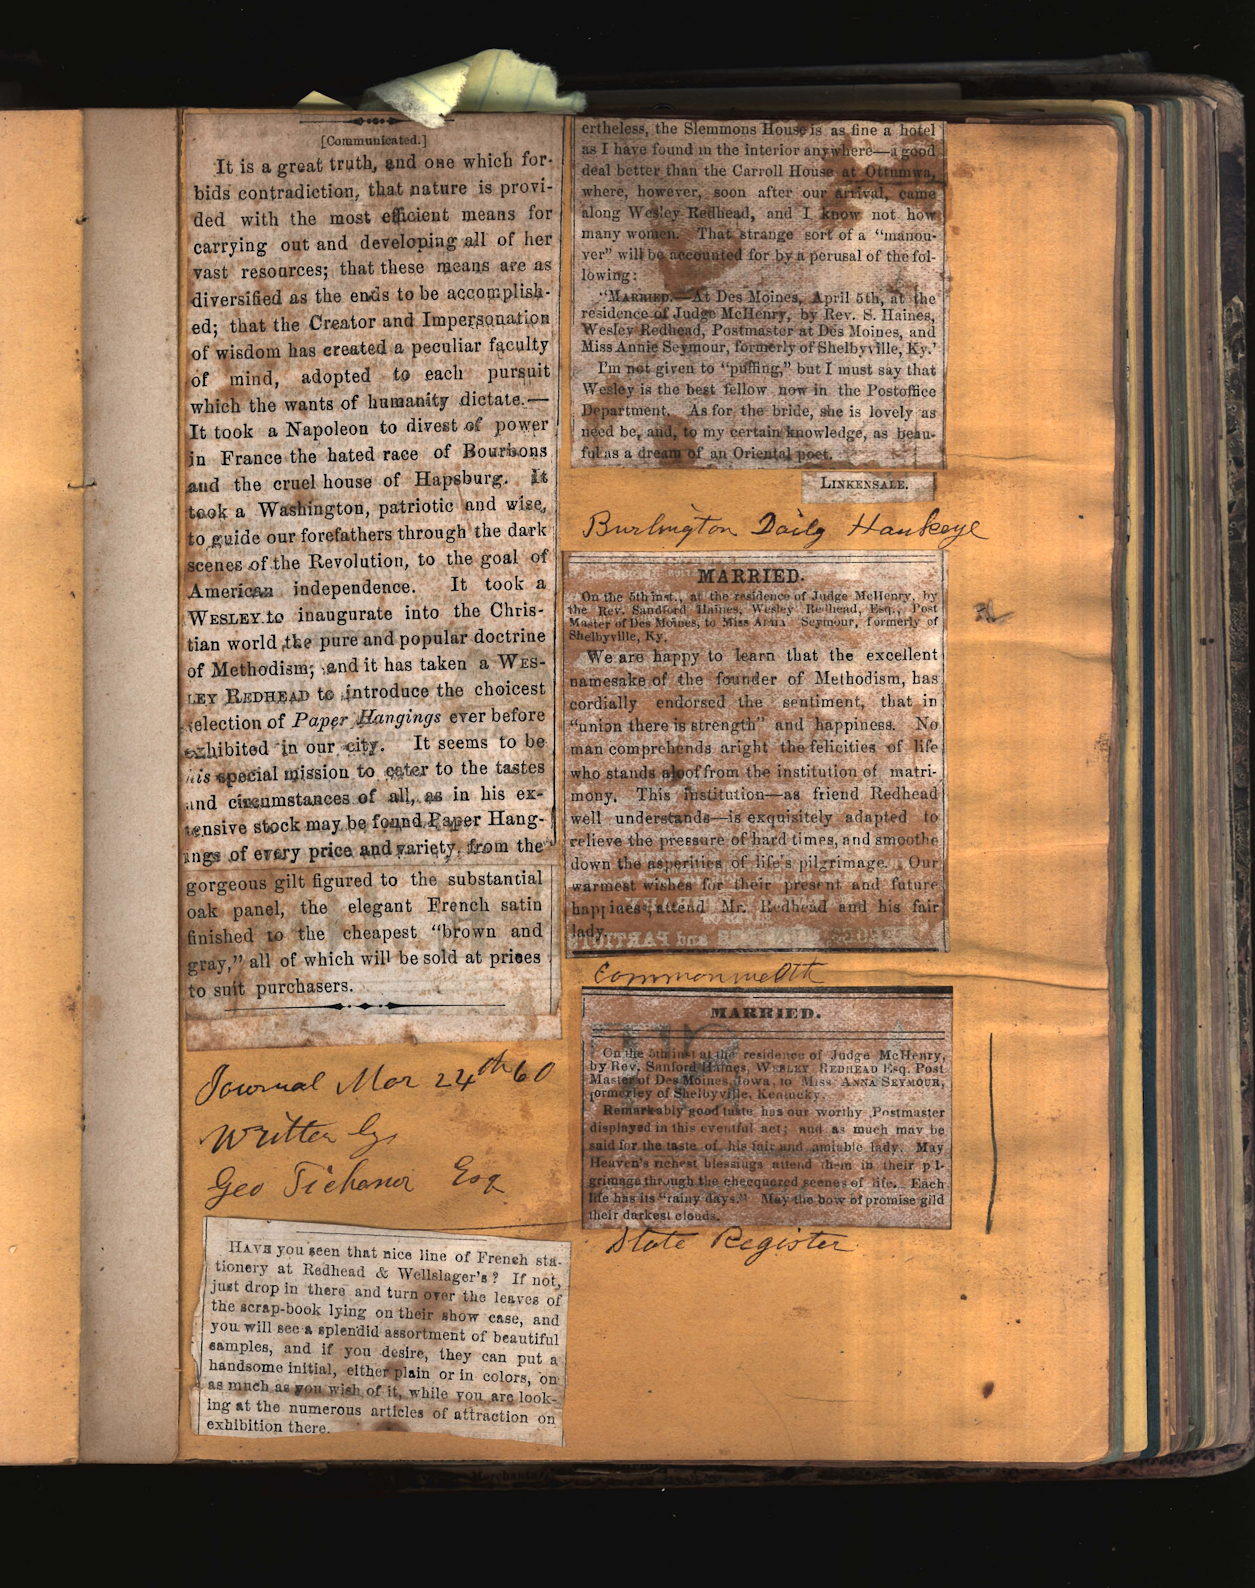 [Communicated.]
It is a great truth, and one which for-
bids contradiction, that nature is provi-
ded with the most efficient means for
carrying out and developing all of her
vast resources; that these means are as
diversified as the ends to be accomplish-
ed; that the Creator and Impersonation
of wisdom has created a peculiar faculty
of mind, adopted to each pursuit
which the wants of humanity dictate.—
It took a Napoleon to divest of power
in France the hated race of Bourbons
and the cruel house of Hapsburg. It
took a Washington, patriotic and wise,
to guide our forefathers through the dark
scenes of the Revolution, to the goal of
American independence. It took a
WESLEY to inaugurate into the Chris-
tian world the pure and popular doctrine
of Methodism; and it has taken a WES-
LEY REDHEAD to introduce the choicest
selection of Paper Hangings ever before
exhibited in our city. It seems to be
his special mission to cater to the tastes
and circumstances of all, as in his ex-
tensive stock may be found Paper Hang-
ings of every price and variety, from the
gorgeous gilt figured to the substantial
oak panel, the elegant French satin
finished to the cheapest "brown and
gray," all of which will be sold at prices
to suit purchasers.
Journal Mar 24th 60
Written by
Geo Tichenor Esq
HAVE you seen that nice line of French sta-
tionery at Redhead & Wellslager's? If not,
just drop in there and turn over the leaves of
the scrap-book lying on their show case, and
you will see a splendid assortment of beautiful
samples, and if you desire, they can put a
handsome initial, either plain or in colors, on
as much as you wish of it, while you are look-
ing at the numerous articles of attraction on
exhibition there.
ertheless, the Slemmons House is as fine a hotel
as I have found in the interior anywhere—a good
deal better than the Carroll House at Ottumwa,
where, however, soon after our arrival, came
along Wesley Redhead, and I know not how
many women. That strange sort of a "manou-
ver" will be accounted for by a perusal of the fol-
lowing:
"MARRIED.—At Des Moines, April 5th, at the
residence of Judge McHenry, by Rev. S. Haines,
Wesley Redhead, Postmaster at Des Moines, and
Miss Annie Seymour, formerly of Shelbyville, Ky.'
I'm not given to "puffing," but I must say that
Wesley is the best fellow now in the Postoffice
Department. As for the bride, she is lovely as
need be, and, to my certain knowledge, as beau-
ful as a dream of an Oriental poet.
LINKENSALE.
Burlington Daily Hawkeye
MARRIED.
On the 5th inst., at the residence of Judge McHenry, by
the Rev. Sandford Haines, Wesley Redhead, Esq., Post
Master of Des Moines, to Miss Anna Seymour, formerly of
Shelbyville, Ky.
We are happy to learn that the excellent
namesake of the founder of Methodism, has
cordially endorsed the sentiment, that in
"union there is strength" and happiness. No
man comprehends aright the felicities of life
who stands aloof from the institution of matri-
mony. This institution—as friend Redhead
well understands—is exquisitely adapted to
relieve the pressure of hard times, and smoothe
down the asperities of life's pilgrimage. Our
warmest wishes for their present and future
happiness, attend Mr. Redhead and his fair
lady.
Commonwealth
MARRIED.
On the 5th inst at the residence of Judge McHenry,
by Rev. Sanford Haines, WESLEY REDHEAD Esq. Post
Master of Des Moines, Iowa, to Miss ANNA SEYMOUR,
formerley of Shelbyville, Kentucky.
Remarkably good taste has our worthy Postmaster
displayed in this eventful act; and as much may be
said for the taste of his fair and amiable lady. May
Heaven's richest blessings attend them in their pil-
grimage through the checquered scenes of life. Each
life has its "rainy days." May the bow of promise gild
their darkest clouds.
State Register